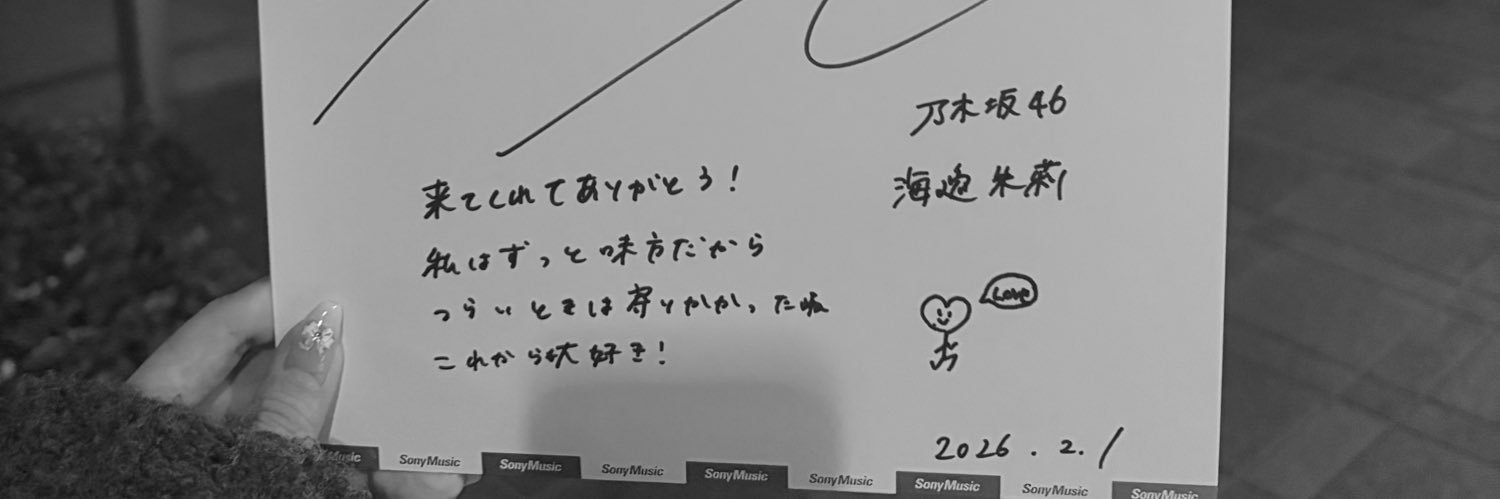 乃木坂46
海邉朱莉
来てくれてありがとう!
私はずっと味方だから
つらいときは寄りかかった
これからも大好き!
Love
2026.2.1
Music
SonyMusic
SonyMusic
SonyMusic
SonyMusic
SonyMusic
SonyMusic
SonyMusic
SonyMusic